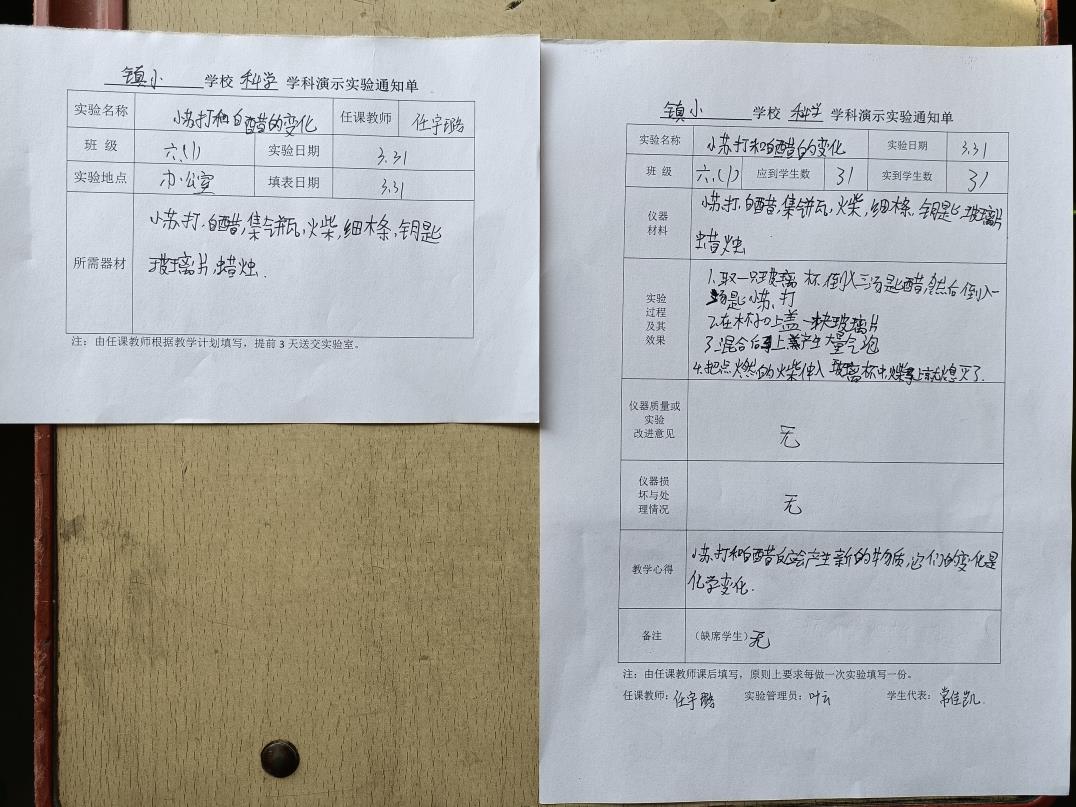 镇小 学校 科学 学科演示实验通知单
实验名称 小苏打和白醋的变化 任课教师 任宇璐
班 级 六.(1) 实验日期 3.31
实验地点 办公室 填表日期 3.31
所需器材 小苏打,白醋,集气瓶,火柴,细木条,钥匙
玻璃片,蜡烛.
注：由任课教师根据教学计划填写，提前 3 天送交实验室。
镇小 学校 科学 学科演示实验通知单
实验名称 小苏打和白醋的变化 实验日期 3.31
班 级 六.(1) 应到学生数 31 实到学生数 31
仪器
材料
小苏打.白醋,集气瓶,火柴,细木条,钥匙,玻璃片
蜡烛
实验
过程
及其
效果
1.取一只玻璃杯,倒入三汤匙醋,然后倒入一
汤匙小苏打
2.在杯口上盖一块玻璃片
3.混合后马上产生大量气泡
4.把点燃的火柴伸入玻璃杯中,火柴马上就熄灭了.
仪器质量或
实验
改进意见
无
仪器损
坏与处
理情况
无
教学心得 小苏打和白醋反应会产生新的物质,它们的变化是
化学变化.
备注 (缺席学生) 无
注：由任课教师课后填写，原则上要求每做一次实验填写一份。
任课教师：任宇璐 实验管理员：叶云 学生代表：常佳凯